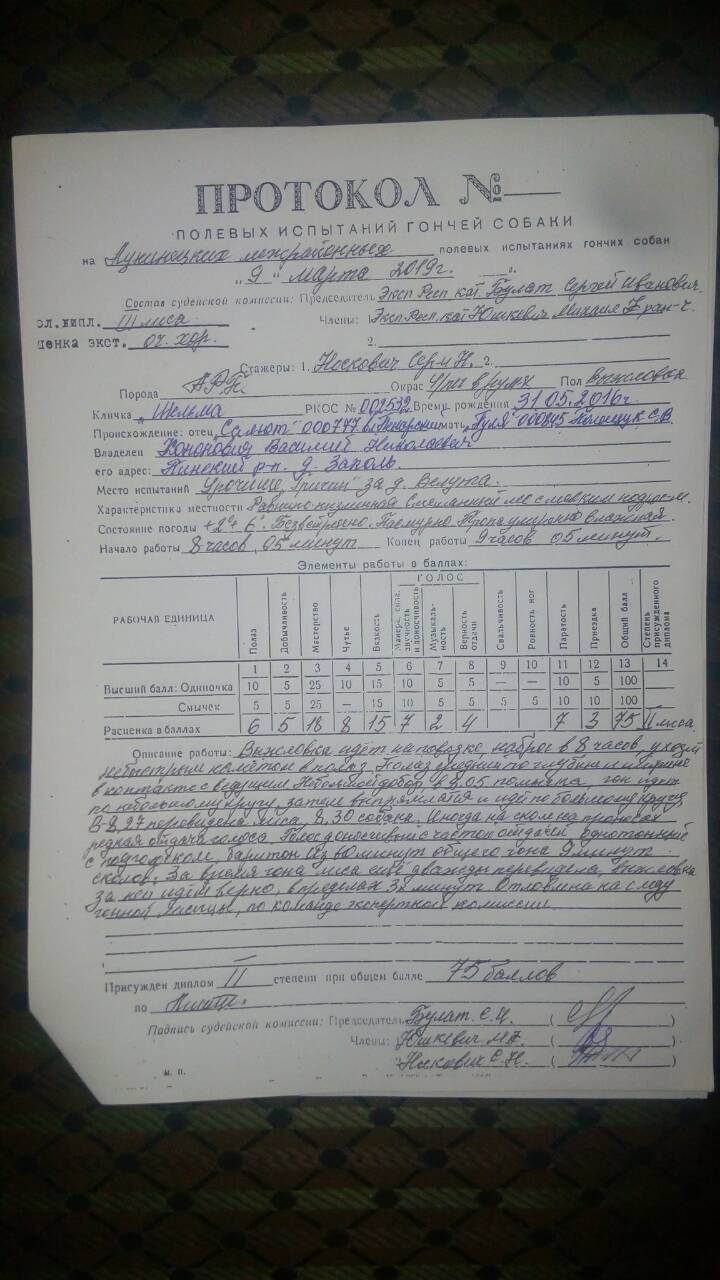 ПРОТОКОЛ №
ПОЛЕВЫХ ИСПЫТАНИЙ ГОНЧЕЙ СОБАКИ
на Лунинецких межрайонных полевых испытаниях гончих собак
„9" марта 2019г. г.
Состав судейской комиссии: Председатель Эксп. Респ. кат. Булат Сергей Иванович.
ол. дипл. III лиса Члены: 1. Эксп. Респ. кат. Юшкевич Михаил Фран-ч.
ценка экст. оч. хор. 2.
Стажеры: 1. Носкович Серг. Н. 2.
Порода АРГ. Окрас Ч/п в румх Пол Выжловка
Кличка „Шельма РКОС № 002532 Время рождения 31.05.2016г.
Происхождение: отец „Салют" 000777 мать „Гуля" 000845 С.В.
Владелец Кононович Василий Николаевич
его адрес: Пинский р-н. д. Заполь.
Место испытаний Урочище „Гричин" за д. Велута.
Характеристика местности Равнино-низинная Смешанный лес с мелким подрост.
Состояние погоды +2°+6°. Безветренно. Пасмурно. Тропа умеренно влажная.
Начало работы 8 часов 05 минут Конец работы 9 часов 05 минут.
Элементы работы в баллах:
РАБОЧАЯ ЕДИНИЦА Полаз Добычливость Мастерство Чутье Вязкость ГОЛОС Манера, сила, звучность и доносчивость Музыкальность Верность отдачи Свальчивость Ровность ног Паратость Приездка Общий балл Степень присужденного диплома
1 2 3 4 5 6 7 8 9 10 11 12 13 14
Высший балл: Одиночка 10 5 25 10 15 10 5 5 — — 10 5 100
Смычек 5 5 25 — 15 10 5 5 5 5 10 10 100
Расценка в баллах 6 5 18 8 15 7 2 4 7 3 75 II лиса.
Описание работы: Выжловка идёт на поводке, наброс в 8 часов, уходит
небыстрым намётом в полаз. Полаз средний по глубине и ширине
в контакте с ведущим. Небольшой добор, в 8.05 помкнула, гон идёт
по небольшому кругу, затем выпрямляется и идёт по большому кругу.
В 8.27 перевидена лиса, 8.30 собака. Иногда на сколах проносах
редкая отдача голоса. Голос доносчивый с частой отдачей однотонный
с баритон. Из 60 минут общего гона 9 минут
сколов. За время гона лиса ещё дважды перевидена. Выжловка
за ней идёт верно, в пределах 3х минут. Отловлена на следу
гонной лисицы, по команде экспертной комиссии.
Присужден диплом II степени при общем балле 75 баллов
по лисице.
Подпись судейской комиссии: Председатель Булат С.И. ( )
Члены: Юшкевич М.Ф. ( )
Носкович С.Н. ( )
М. П.